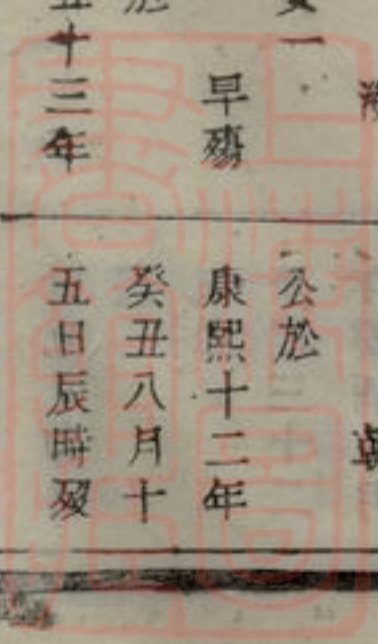 女一
早殤
於
五十三年
公於
康熙十二年
癸丑八月十
五日辰時歿